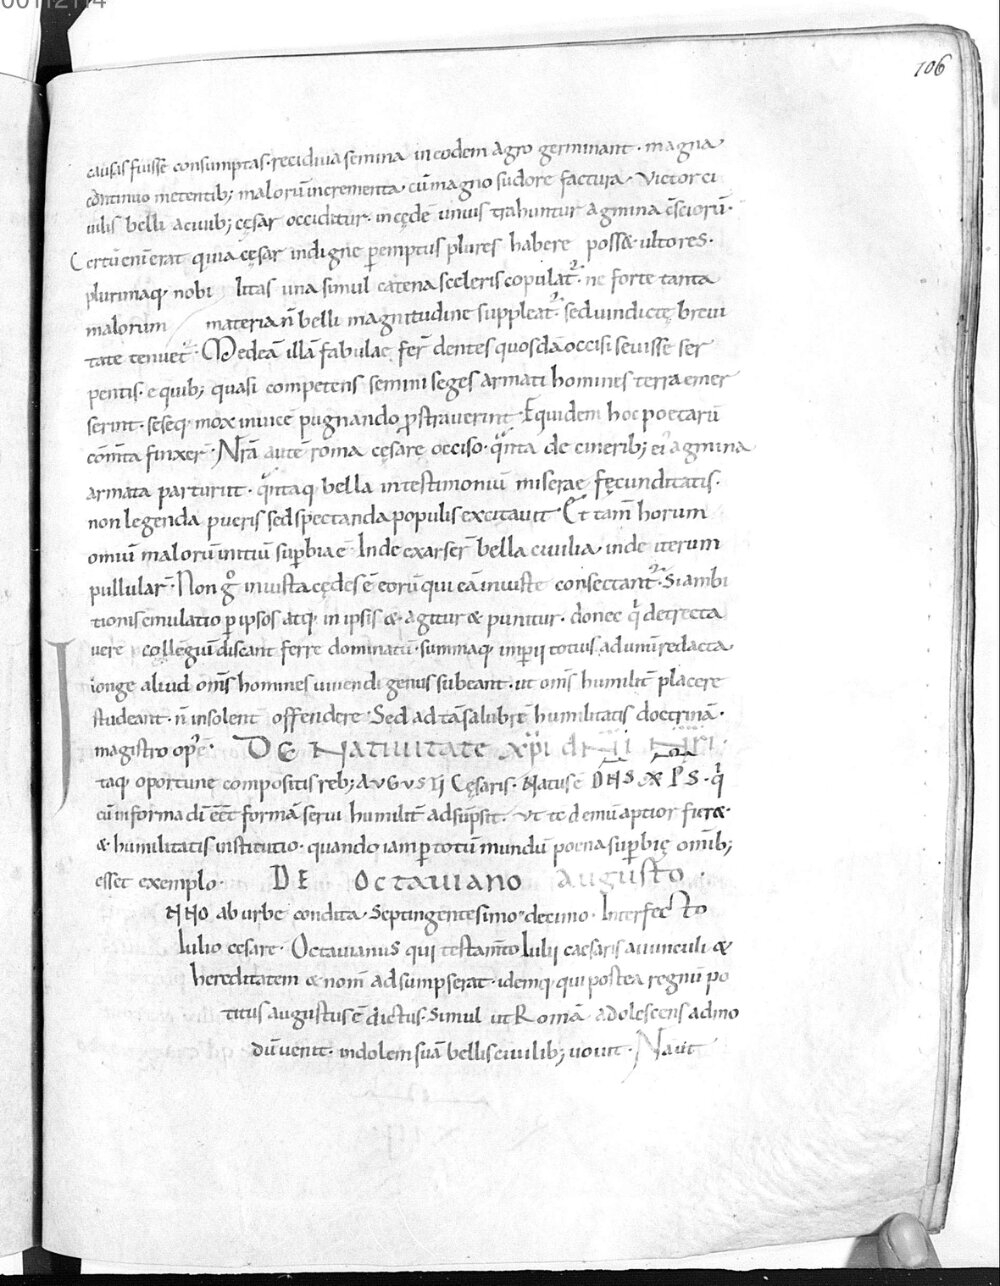 00112114
106
causis fuisse consumptas· recidiua semina in eodem agro germinant· magna
c̄tinuo metentib; malorū incrementa cū magno sudore factura· Victor ci
uilis belli a ciuib; cęsar occiditur· in cęde unius trahuntur agmina c̄sciorū·
Certū eni͂ erat quia cęsar indigne p̄emptus plures habere poss& ultores·
plurimaq; nobi litas una simul catena sceleris copulat̄· ne forte tanta
malorum materia n̄ belli magnitudine suppleat̄· sed uindictę breui
tate tenuet̄· Medeā illā fabulae fer̄ dentes quosdā occisi seuisse ser
pentis· e quib; quasi competens semini seges armati homines terra emer
serint· seseq; mox inuicē pugnando ꝓstrauerint· Equidem hoc poetarū
cōm̄ta finxer̄· Nr̄a autē roma cęsare occiso· q͛nta de cinerib; ei' agmina
armata parturiit· q͛ntaq; bella in testimoniū miserae fęcunditatis·
non legenda pueris sed spectanda populis excitauit· Et tam̄ horum
omiū malorū initiū suꝑbia ē· Inde exarser̄ bella ciuilia· inde iterum
pullular̄· Non g͛ iniusta cędes ē eorū qui eā iniuste consectant̄· Si ambi
tionis emulatio ꝑ ipsos atq; in ipsis & agitur & punitur· donec q͛ detrecta
uere collegiū discant ferre dominatū· summaq; imꝑii totius ad unū redacta
longe aliud om̄s homines uiuendi genus subeant· ut om̄s humilit̄ placere
studeant· n̄ insolent̄ offendere· Sed ad tā salubrē humilitatis doctrinā·
magistro op' ē· DE Natiuitate xp̄i dn̄i nr̄i·
I taq; oportune compositis reb; AVGVSTI Cęsaris· Natus ē DN̄S XP̄S· q͛
cū in forma dī ēēt formā serui humilit̄ adsūpsit· Vt tc̄ demū aptior fier&
& humilitatis institutio· quando iam ꝑ totū mundū poena suꝑbię omib;
esset exemplo· DE OCTAVIANO AUGUSTO·
NNO ab urbe condita· Septingentesimo decimo· Interfecto
Iulio cesare· Octauianus qui testam̄to Iulii caesaris auunculi &
hereditatem & nom̄ adsumpserat· idemq; qui postea regnū po
titus augustus ē dictus· Simul ut Romā adolescens admo
dū uenit· indolem suā bellis ciuilib; uouit· Nā ut